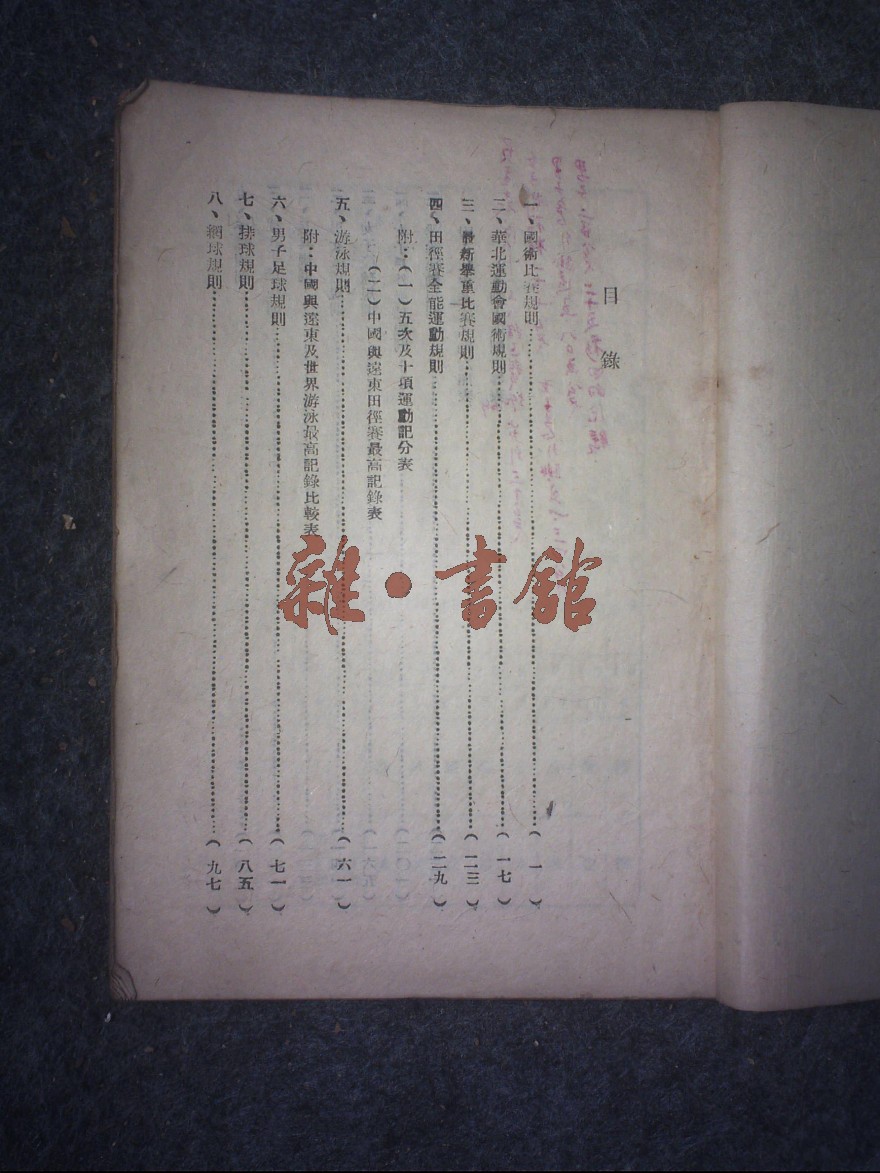 目錄
一、國術比賽規則……(一)
二、華北運動會國術規則……(一七)
三、最新舉重比賽規則……(二三)
四、田徑賽全能運動規則……(二九)
附：(一)五次及十項運動記分表
(二)中國與遠東田徑賽最高記錄表
五、游泳規則……(六一)
附：中國與遠東及世界游泳最高記錄比較表
六、男子足球規則……(七一)
七、排球規則……(八五)
八、網球規則……(九七)
雜·書館